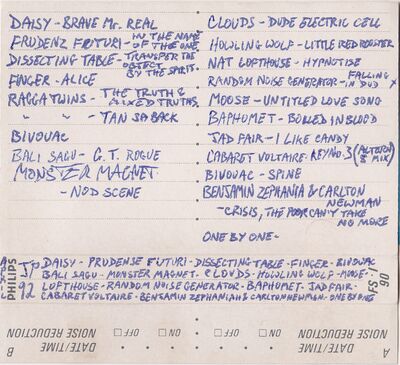 DAISY - BRAVE MR. REAL
PRUDENZ FUTURI - IN THE NAME OF THE ONE
DISSECTING TABLE - TRANSFER THE OBJECT BY THE SPIRIT.
FINGER - ALICE
RAGGA TWINS - THE TRUTH & MIXED TRUTHS.
" " - TAN SO BACK
BIVOUAC
BALI SAGU - G.T. ROGUE
MONSTER MAGNET
- NOD SCENE
CLOUDS - DUDE ELECTRIC CELL
HOWLING WOLF - LITTLE RED ROOSTER
NAT LOFTHOUSE - HYPNOTISE
RANDOM NOISE GENERATOR - FALLING IN DUB
MOOSE - UNTITLED LOVE SONG
BAPHOMET - BOILED IN BLOOD
JAD FAIR - I LIKE CANDY
CABARET VOLTAIRE - KEY NO. 3 (ALTERN8 MIX)
BIVOUAC - SPINE
BENJAMIN ZEPHANIA & CARLTON NEWMAN
- CRISIS, THE POOR CAN'T TAKE NO MORE
ONE BY ONE -
PHILIPS
JP
92
DAISY - PRUDENSE FUTURI - DISSECTING TABLE - FINGER - BIVOUAC
BALI SAGU - MONSTER MAGNET - CLOUDS - HOWLING WOLF - MOOSE -
LOFTHOUSE - RANDOM NOISE GENERATOR - BAPHOMET - JAD FAIR -
CABARET VOLTAIRE - BENJAMIN ZEPHANIAH & CARLTON NEWMAN - ONE BY ONE
FS I
90
A
DATE/TIME
NOISE REDUCTION
ON
OFF
B
DATE/TIME
NOISE REDUCTION
ON
OFF